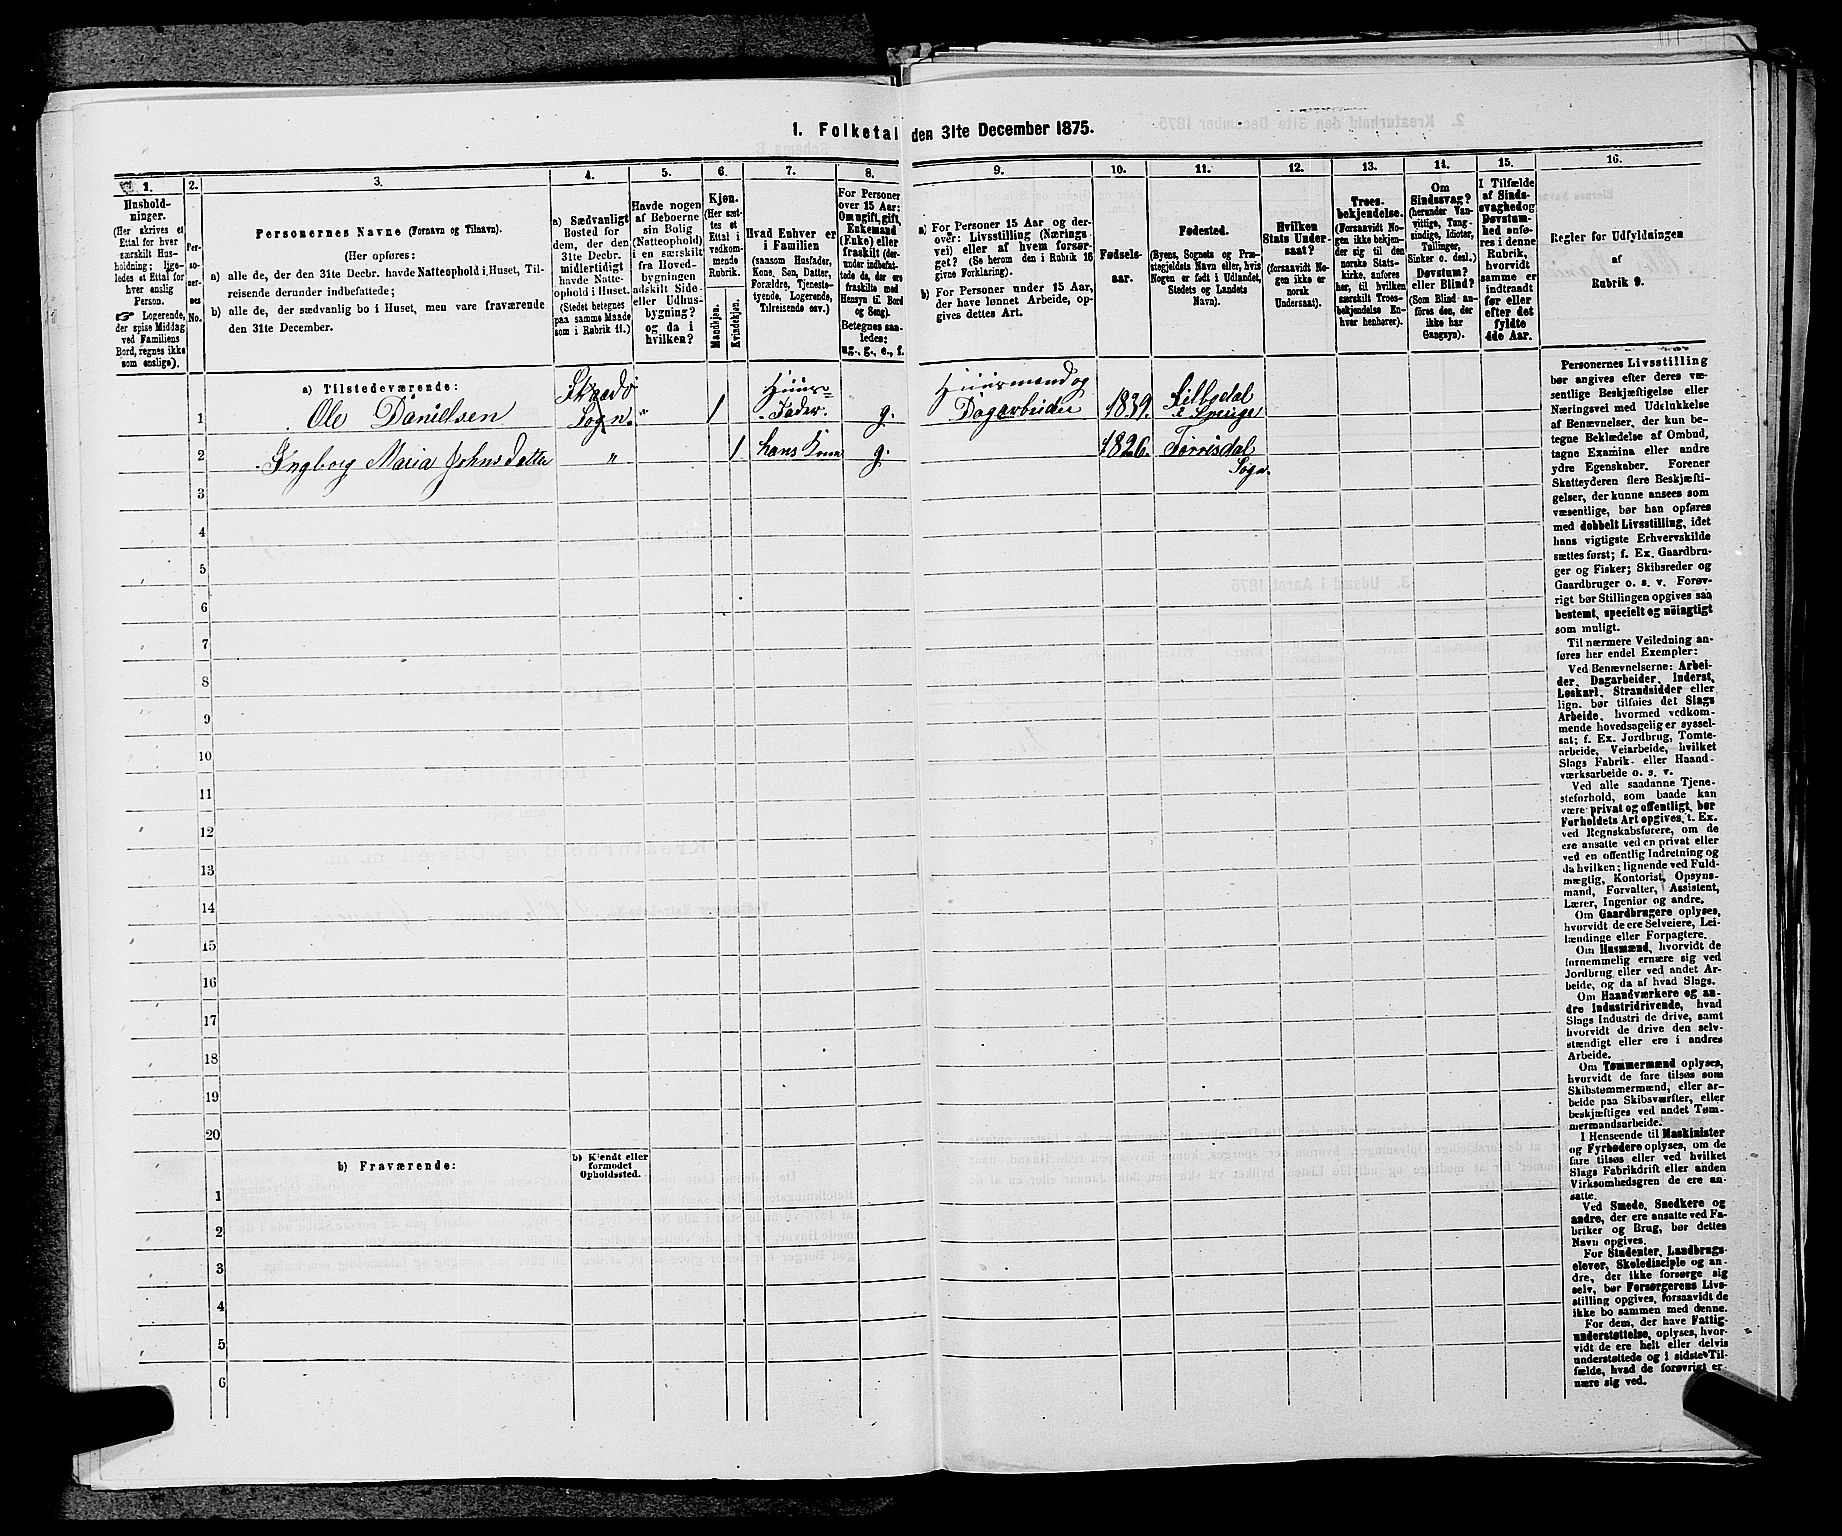 1. Folketal den 31te December 1875.
1.
Hushold-
ninger.
(Her skrives et
Ettal for hver
særskilt Hus-
holdning; lige-
ledes et Ettal for
hver enslig
Person.
☞ Logerende,
der spise Middag
ved Familiens
Bord, regnes ikke
som enslige).
2.
Per-
so-
ner-
nes
No.
3.
Personernes Navne (Fornavn og Tilnavn).
(Her opføres:
a) alle de, der den 31te Decbr. havde Natteophold i Huset, Til-
reisende derunder indbefattede;
b) alle de, der sædvanlig bo i Huset, men vare fraværende
den 31te December.
4.
a) Sædvanligt
Bosted for
dem, der den
31te Decbr.
midlertidigt
havde Natte-
ophold i Huset.
(Stedet betegnes
paa samme Maade
som i Rubrik 11.)
5.
Havde nogen
af Beboerne
sin Bolig
(Natteophold)
i en særskilt
fra Hoved-
bygningen
adskilt Side-
eller Udhus-
bygning?
og da i
hvilken?
6.
Kjøn.
(Her sæt-
tes et
Ettal i
vedkom-
mende
Rubrik.
Mandkjøn.
Kvindekjøn.
7.
Hvad Enhver er
i Familien
(saasom Husfader,
Kone, Søn, Datter,
Forældre, Tjeneste-
tyende, Logerende,
Tilreisende osv.)
8.
For Personer
over 15 Aar:
Om ugift, gift,
Enkemand
(Enke) eller
fraskilt (der-
under indbefat-
tede de, der ere
fraskilte med
Hensyn til Bord
og Seng).
Betegnes saa-
ledes:
ug., g., e., f.
9.
a) For Personer 15 Aar og der-
over: Livsstilling (Nærings-
vei) eller af hvem forsør-
get? (Se herom den i Rubrik 16
givne Forklaring).
b) For Personer under 15 Aar,
der have lønnet Arbeide, op-
gives dettes Art.
10.
Fødsels-
aar.
11.
Fødested.
(Byens, Sognets og Præ-
stegjeldets Navn eller, hvis
Nogen er født i Udlandet,
Stedets og Landets
Navn).
12.
Hvilken
Stats Under-
saat?
(forsaavidt No-
gen ikke er
norsk
Undersaat).
13.
Troes-
bekjendelse.
(Forsaavidt No-
gen ikke bekjen-
der sig til den
norske Stats-
kirke, anføres
her, til hvilken
særskilt Troes-
bekjendelse En-
hver henhører).
14.
Om
Sindssvag?
(herunder Van-
vittige, Tung-
sindige, Idioter,
Tullinger,
Sinker o. desl.)
Døvstum?
eller Blind?
(Som Blind an-
føres den, der
ikke har
Gangsyn).
15.
I Tilfælde
af Sinds-
svaghed og
Døvstum-
hed anfø-
res i denne
Rubrik,
hvorvidt
samme er
indtraadt
før eller
efter det
fyldte
4de Aar.
16.
Regler for Udfyldningen
af
Rubrik 9.
a) Tilstedeværende:
1 Ole Danielsen Sogn. " 1 Huus-
Fader. g. Huusmand og
Dagarbeider 1839.
2 Ingborg Maria Johns Datter " 1 hans Kone g. 1826. Torrisdal
Sogn.
3
4
5
6
7
8
9
10
11
12
13
14
15
16
17
18
19
20
b) Fraværende:
b) Kjendt eller
formodet
Opholdssted.
1
2
3
4
5
6
Personernes Livsstilling
bør angives efter deres væ-
sentlige Beskjæftigelse eller
Næringsvei med Udelukkelse
af Benævnelser, der kun be-
tegne Beklædelse af Ombud,
tagne Examina eller andre
ydre Egenskaber. Forener
Skatteyderen flere Beskjæfti-
gelser, der kunne ansees som
væsentlige, bør han opføres
med dobbelt Livsstilling, idet
hans vigtigste Erhvervskilde
sættes først; f. Ex. Gaardbru-
ger og Fisker; Skibsreder og
Gaardbruger o. s. v. Forøv-
rigt bør Stillingen opgives saa
bestemt, specielt og nöiagtigt
som muligt.
Til nærmere Veiledning an-
føres her endel Exempler:
Ved Benævnelserne: Arbei-
der, Dagarbeider, Inderst,
Løskarl, Strandsidder eller
lign. bør tilføies det Slags
Arbeide, hvormed vedkom-
mende hovedsagelig er syssel-
sat; f. Ex. Jordbrug, Tomte-
arbeide, Veiarbeide, hvilket
Slags Fabrik- eller Haand-
værksarbeide o. s. v.
Ved alle saadanne Tjene-
steforhold, som baade kan
være privat og offentligt, bør
Forholdets Art opgives, f. Ex.
ved Regnskabsførere, om de
ere ansatte ved en privat eller
ved en offentlig Indretning og
da hvilken; lignende ved Fuld-
mægtig, Kontorist, Opsyns-
mand, Forvalter, Assistent,
Lærer, Ingeniør og andre.
Om Gaardbrugere oplyses,
hvorvidt de ere Selveiere, Lei-
lændinge eller Forpagtere.
Om Husmænd, hvorvidt de
fornemmelig ernære sig ved
Jordbrug eller ved andet Ar-
beide, og da af hvad Slags.
Om Haandværkere og an-
dre Industridrivende, hvad
Slags Industri de drive, samt
hvorvidt de drive den selv-
stændigt eller ere i andres
Arbeide.
Om Tømmermænd oplyses,
hvorvidt de fare tilsøs som
Skibstømmermænd, eller ar-
beide paa Skibsværfter, eller
beskjæftiges ved andet Tøm-
mermandsarbeide.
I Henseende til Maskinister
og Fyrbødere oplyses, om de
fare tilsøs eller ved hvilket
Slags Fabrikdrift eller anden
Virksomhedsgren de ere an-
satte.
Ved Smede, Snedkere og
andre, der ere ansatte ved Fa-
briker og Brug, bør dettes
Navn opgives.
For Studenter, Landbrugs-
elever, Skoledisciple og an-
dre, der ikke forsørge sig
selv, bør Forsørgerens Livs-
stilling opgives, forsaavidt de
ikke bo sammen med denne.
For dem, der have Fattig-
understøttelse, oplyses, hvor-
vidt de ere helt eller delvis
understøttede og i sidste Til-
fælde, hvad de forøvrigt er-
nære sig ved.